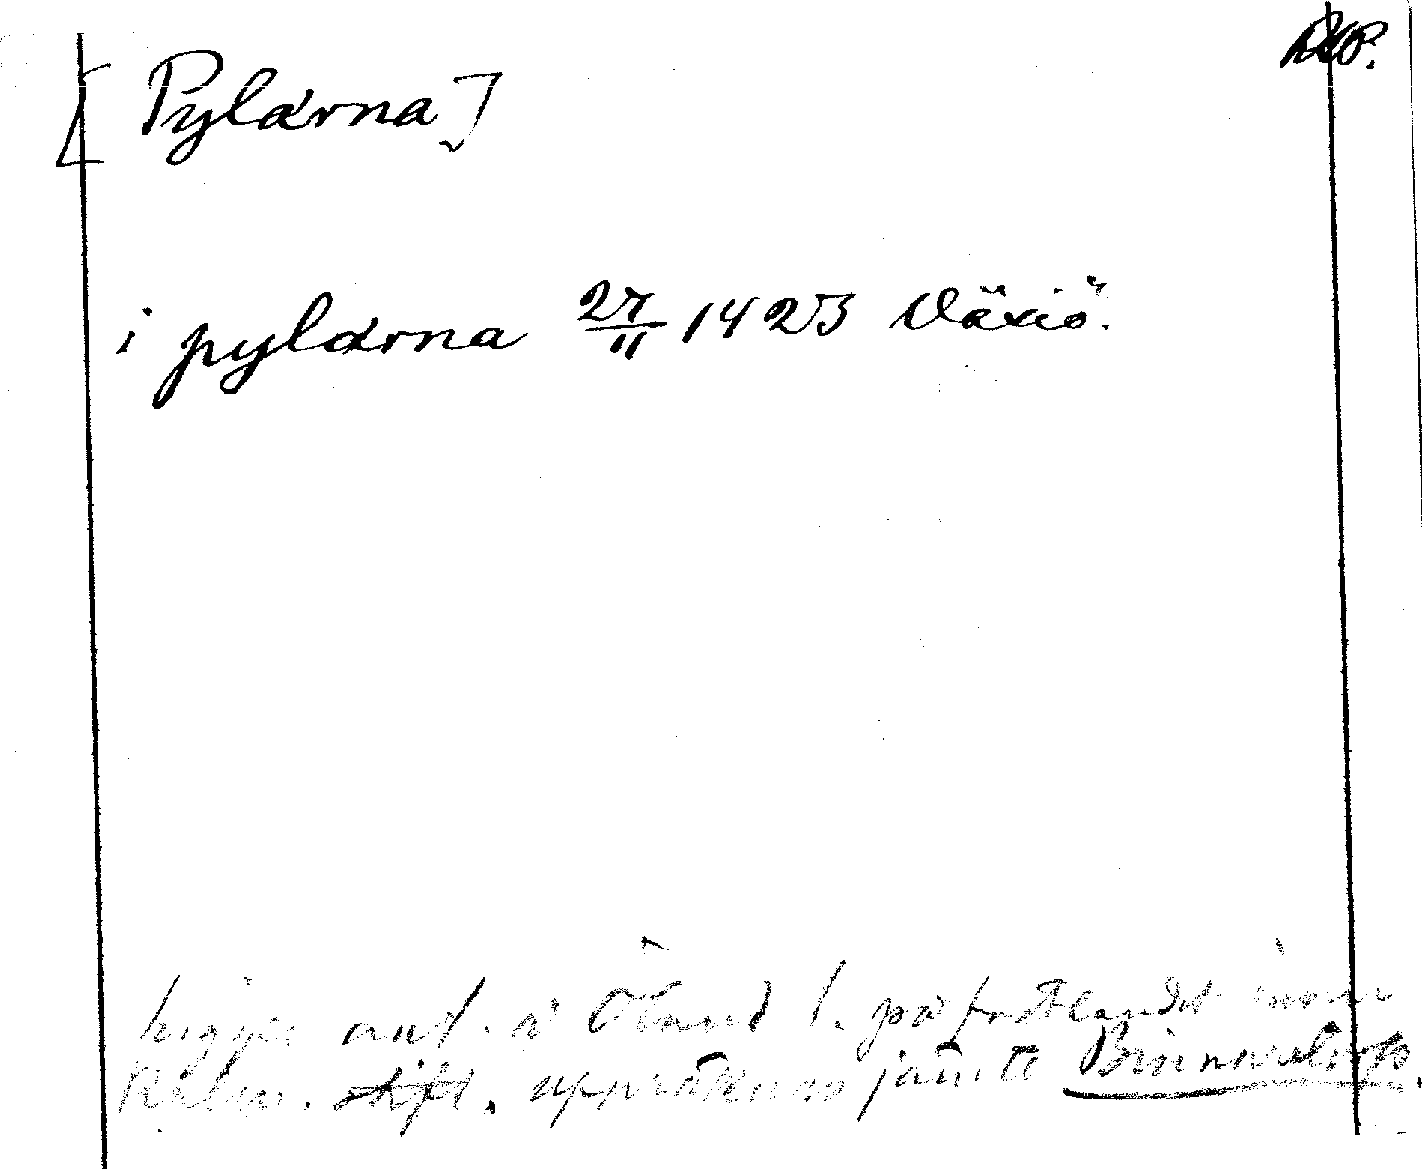 [Pylarna]
i pylarna 27/11 1423 Växiö.
ligger ant. å Öland l. på fastlandet inom
Kalm. stift. uppräknas jämte Binnerstorp.